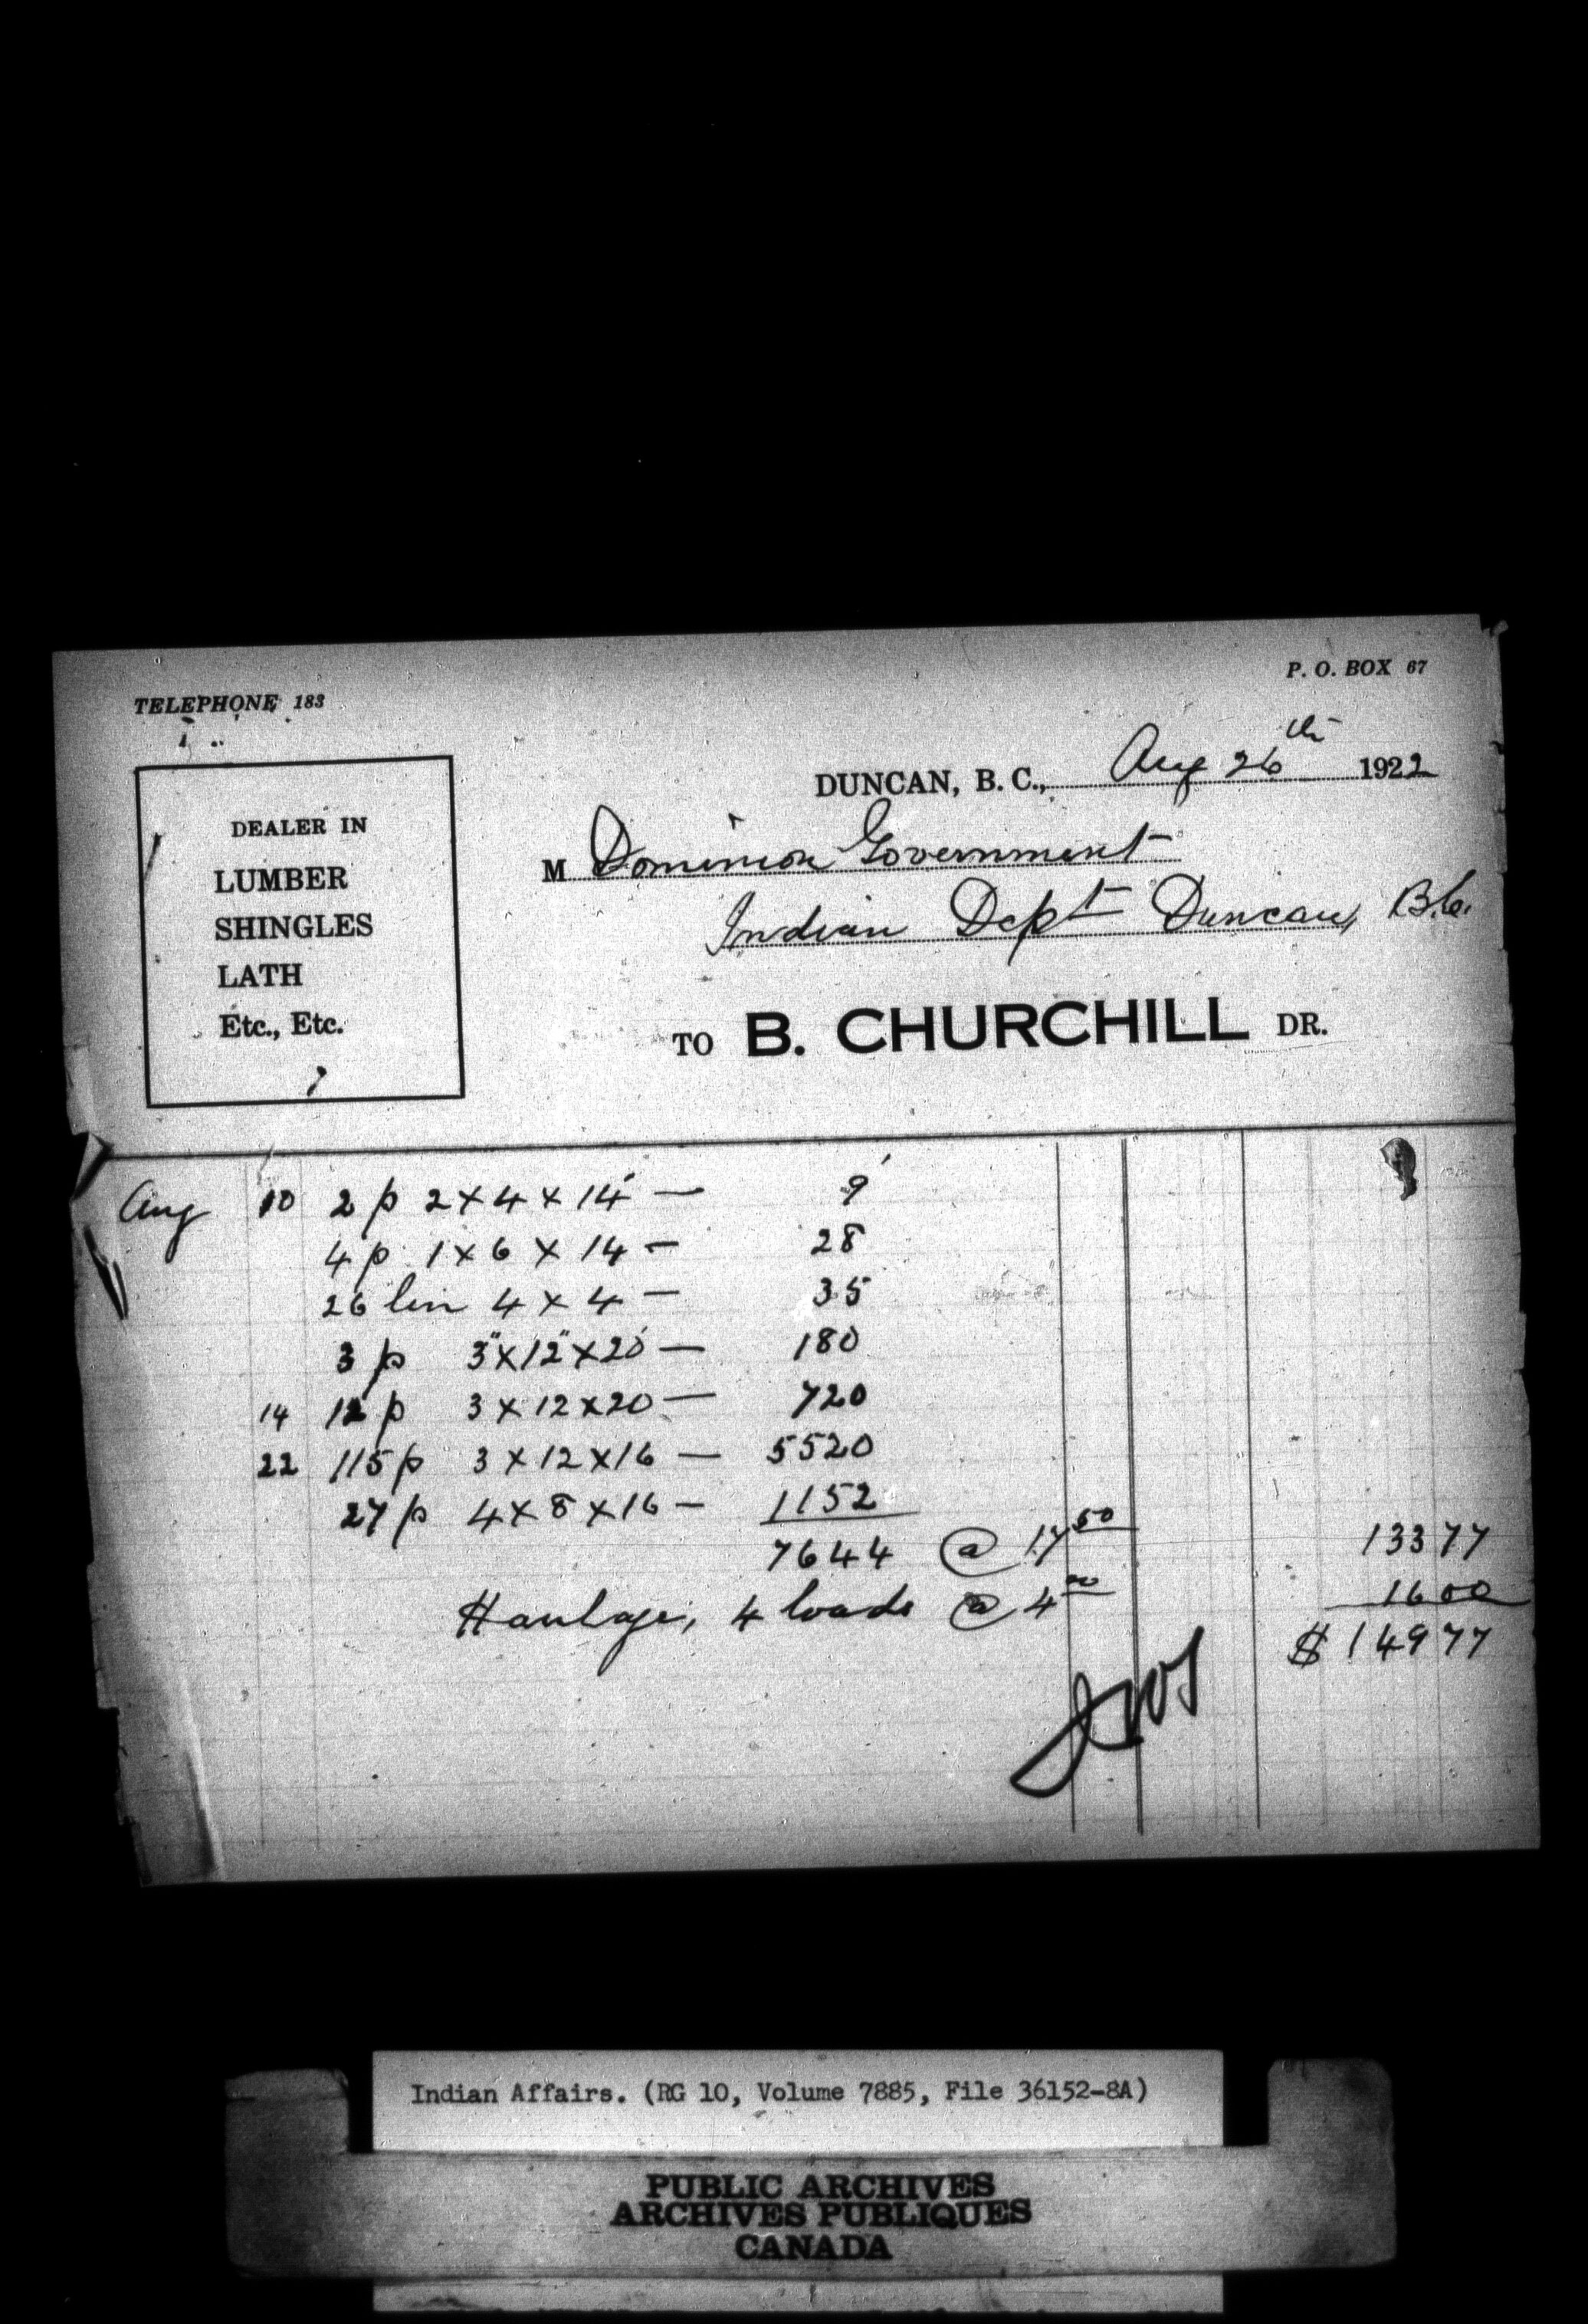 P. O. BOX 67
TELEPHONE 183
DUNCAN, B. C., Aug 26th 1922
DEALER IN
LUMBER
SHINGLES
LATH
Etc., Etc.
M Dominion Government
Indian Dept Duncan, B.C.
TO B. CHURCHILL DR.
Aug 10 2 p 2 x 4 x 14' — 9'
4 p 1 x 6 x 14 — 28
26 lin 4 x 4 — 35
3 p 3" x 12" x 20' — 180
14 12 p 3 x 12 x 20 — 720
22 115 p 3 x 12 x 16 — 5520
27 p 4 x 8 x 16 — 1152
7644 @ 17 50 133 77
Haulage, 4 loads @ 4 00 16 00
$ 149 77
Indian Affairs. (RG 10, Volume 7885, File 36152-8A)
PUBLIC ARCHIVES
ARCHIVES PUBLIQUES
CANADA